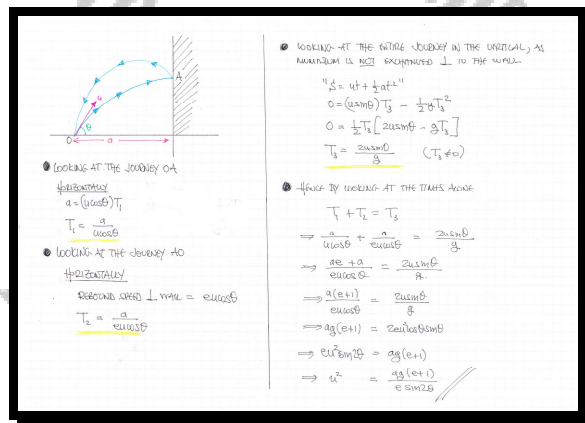 A
u
θ
O
a
LOOKING AT THE JOURNEY OA
HORIZONTALLY
a = (ucosθ)T₁
T₁ = a/ucosθ
LOOKING AT THE JOURNEY AO
HORIZONTALLY
REBOUND SPEED ⊥ WALL = eucosθ
T₂ = a/eucosθ
LOOKING AT THE ENTIRE JOURNEY IN THE VERTICAL, AS
MOMENTUM IS NOT EXCHANGED ⊥ TO THE WALL
"S = ut + ½at²"
0 = (usinθ)T₃ - ½gT₃²
0 = ½T₃[2usinθ - gT₃]
T₃ = 2usinθ/g (T₃ ≠ 0)
HENCE BY LOOKING AT THE TIMES ALONE
T₁ + T₂ = T₃
⇒ a/ucosθ + a/eucosθ = 2usinθ/g
⇒ ae + a/eucosθ = 2usinθ/g
⇒ a(e+1)/eucosθ = 2usinθ/g
⇒ ag(e+1) = 2eu²cosθsinθ
⇒ eu²sin2θ = ag(e+1)
⇒ u² = ag(e+1)/e sin2θ